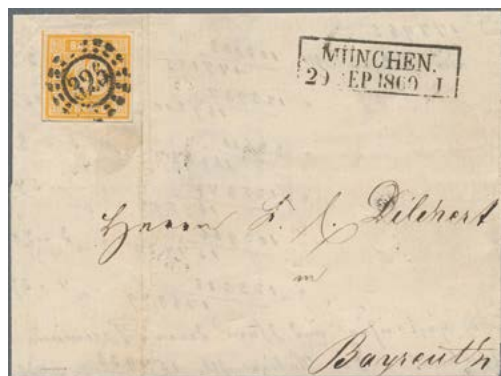 325
MÜNCHEN.
29 SEP 1860 I
Herrn Dilchert
in
Bayreuth